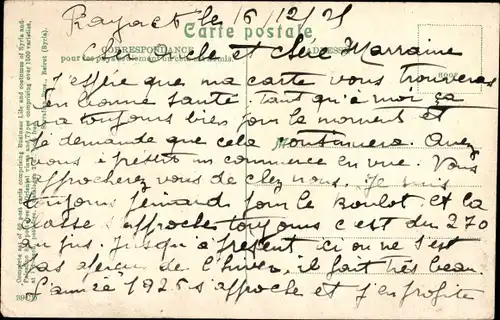 Rayack le 16/12/25
Carte postale
CORRESPONDANCE
ADRESSE
Cher Oncle et chère Marraine
J'espère que ma carte vous trouvera
en bonne santé. Tant qu'à moi ça
va toujours bien pour le moment et
je demande que cela continuera. Avez
vous à présent un commerce en vue. Vous
approcherez vous de chez nous. Je suis
toujours peinard pour le boulot et la
classe approche toujours c'est du 270
au jus. Jusqu'à présent ici on ne s'est
pas aperçu de l'hiver, il fait très beau.
L'année 1926 s'approche et j'en profite
Complete set of 60 post cards comprising Business Life and costumes of Syria and
Beirut (Syria).